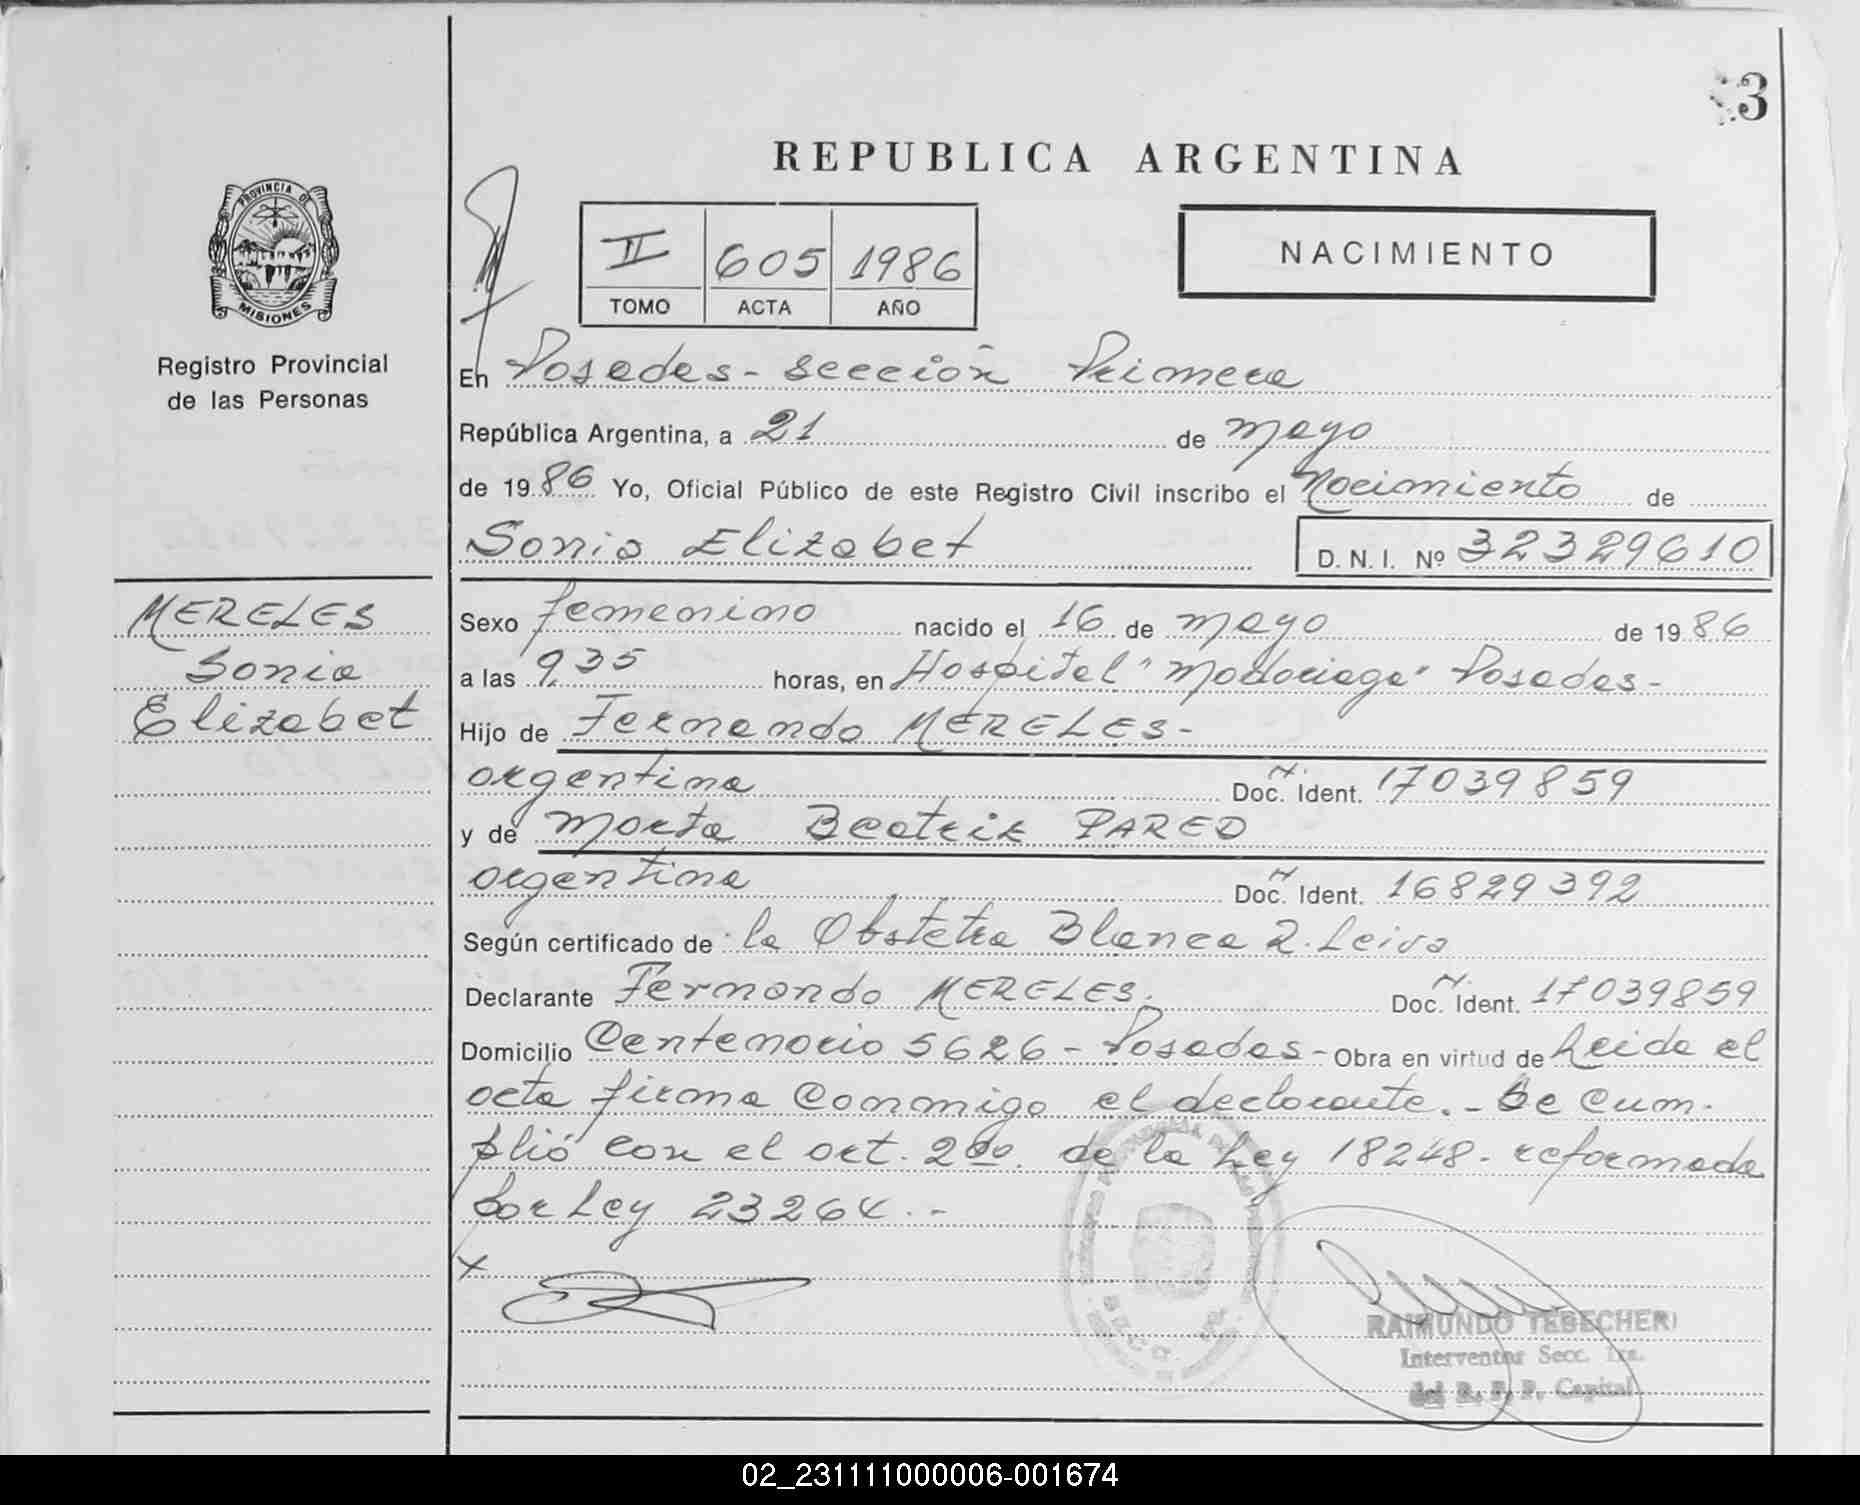 3
REPUBLICA ARGENTINA
PROVINCIA DE
MISIONES
Registro Provincial
de las Personas
II 605 1986
TOMO ACTA AÑO
NACIMIENTO
En Posadas - Sección Primera
República Argentina, a 21 de mayo
de 1986 Yo, Oficial Público de este Registro Civil inscribo el Nacimiento de
Sonia Elizabet D. N. I. Nº 32329610
MERELES
Sonia
Elizabet
Sexo femenino nacido el 16 de mayo de 1986
a las 9,35 horas, en Hospital "Madariaga" Posadas-
Hijo de Fernando MERELES-
argentina Doc. Ident. 17039859
y de Marta Beatriz PARED
argentina Doc. Ident. 16829392
Según certificado de la Obstetra Blanca R. Leiva
Declarante Fernando MERELES. Doc. Ident. 17039859
Domicilio Centenario 5626 - Posadas - Obra en virtud de Leida el
acta firma conmigo el declarante. - Se cum-
plió con el art. 2do. de la Ley 18248 - reformada
por Ley 23264. -
x
RAIMUNDO TEBECHERI
Interventor Secc. 1ra.
del R. P. P. Capital
02_231111000006-001674